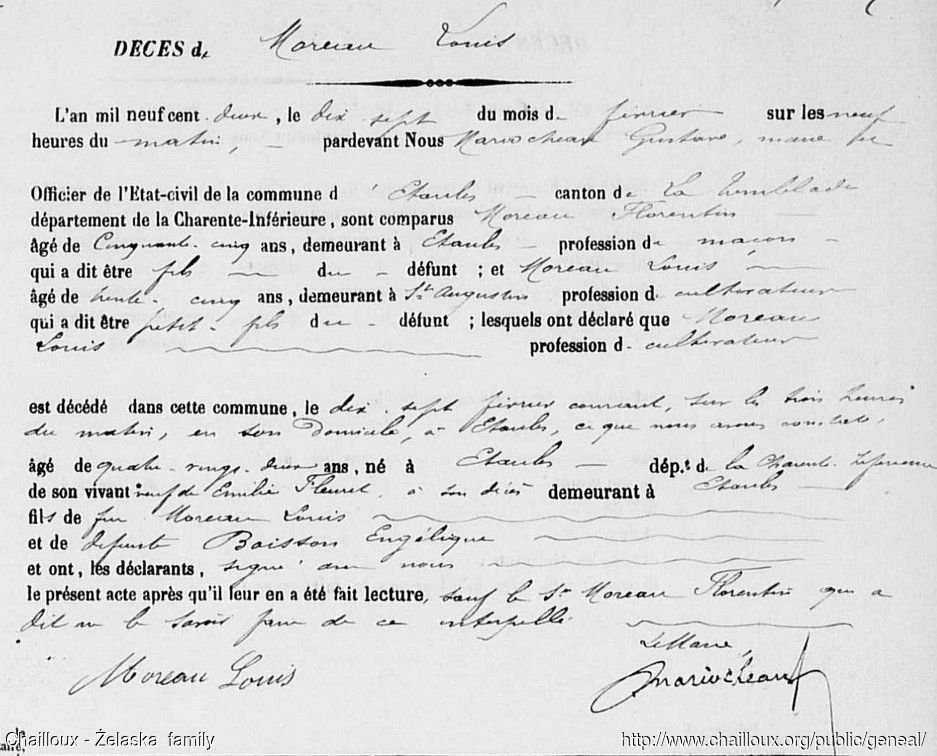 DECES de Moreau Louis
L'an mil neuf cent deux, le dix sept du mois de février sur les neuf
heures du matin, pardevant Nous Mariocheau Gustave, maire et
Officier de l'Etat-civil de la commune d'Etaules canton de La Tremblade
département de la Charente-Inférieure, sont comparus Moreau Florentin
âgé de Cinquante-cinq ans, demeurant à Etaules profession de maçon
qui a dit être fils du défunt ; et Moreau Louis
âgé de trente-cinq ans, demeurant à St Augustin profession de cultivateur
qui a dit être petit-fils du défunt ; lesquels ont déclaré que Moreau
Louis profession de cultivateur
est décédé dans cette commune, le dix sept février courant, sur les trois heures
du matin, en son domicile, à Etaules, ce que nous avons constaté,
âgé de quatre-vingt-deux ans, né à Etaules dép.t de la Charente Inférieure
de son vivant veuf de Emilie Fleuret, à son décès demeurant à Etaules
fils de feu Moreau Louis
et de défunte Boisson Engélique
et ont, les déclarants, signé avec nous
le présent acte après qu'il leur en a été fait lecture, sauf le Sr Moreau Florentin qui a
dit ne le savoir faire de ce interpellé.
Le Maire,
Moreau Louis Mariocheau
Chailloux - Żelaska family http://www.chailloux.org/public/geneal/